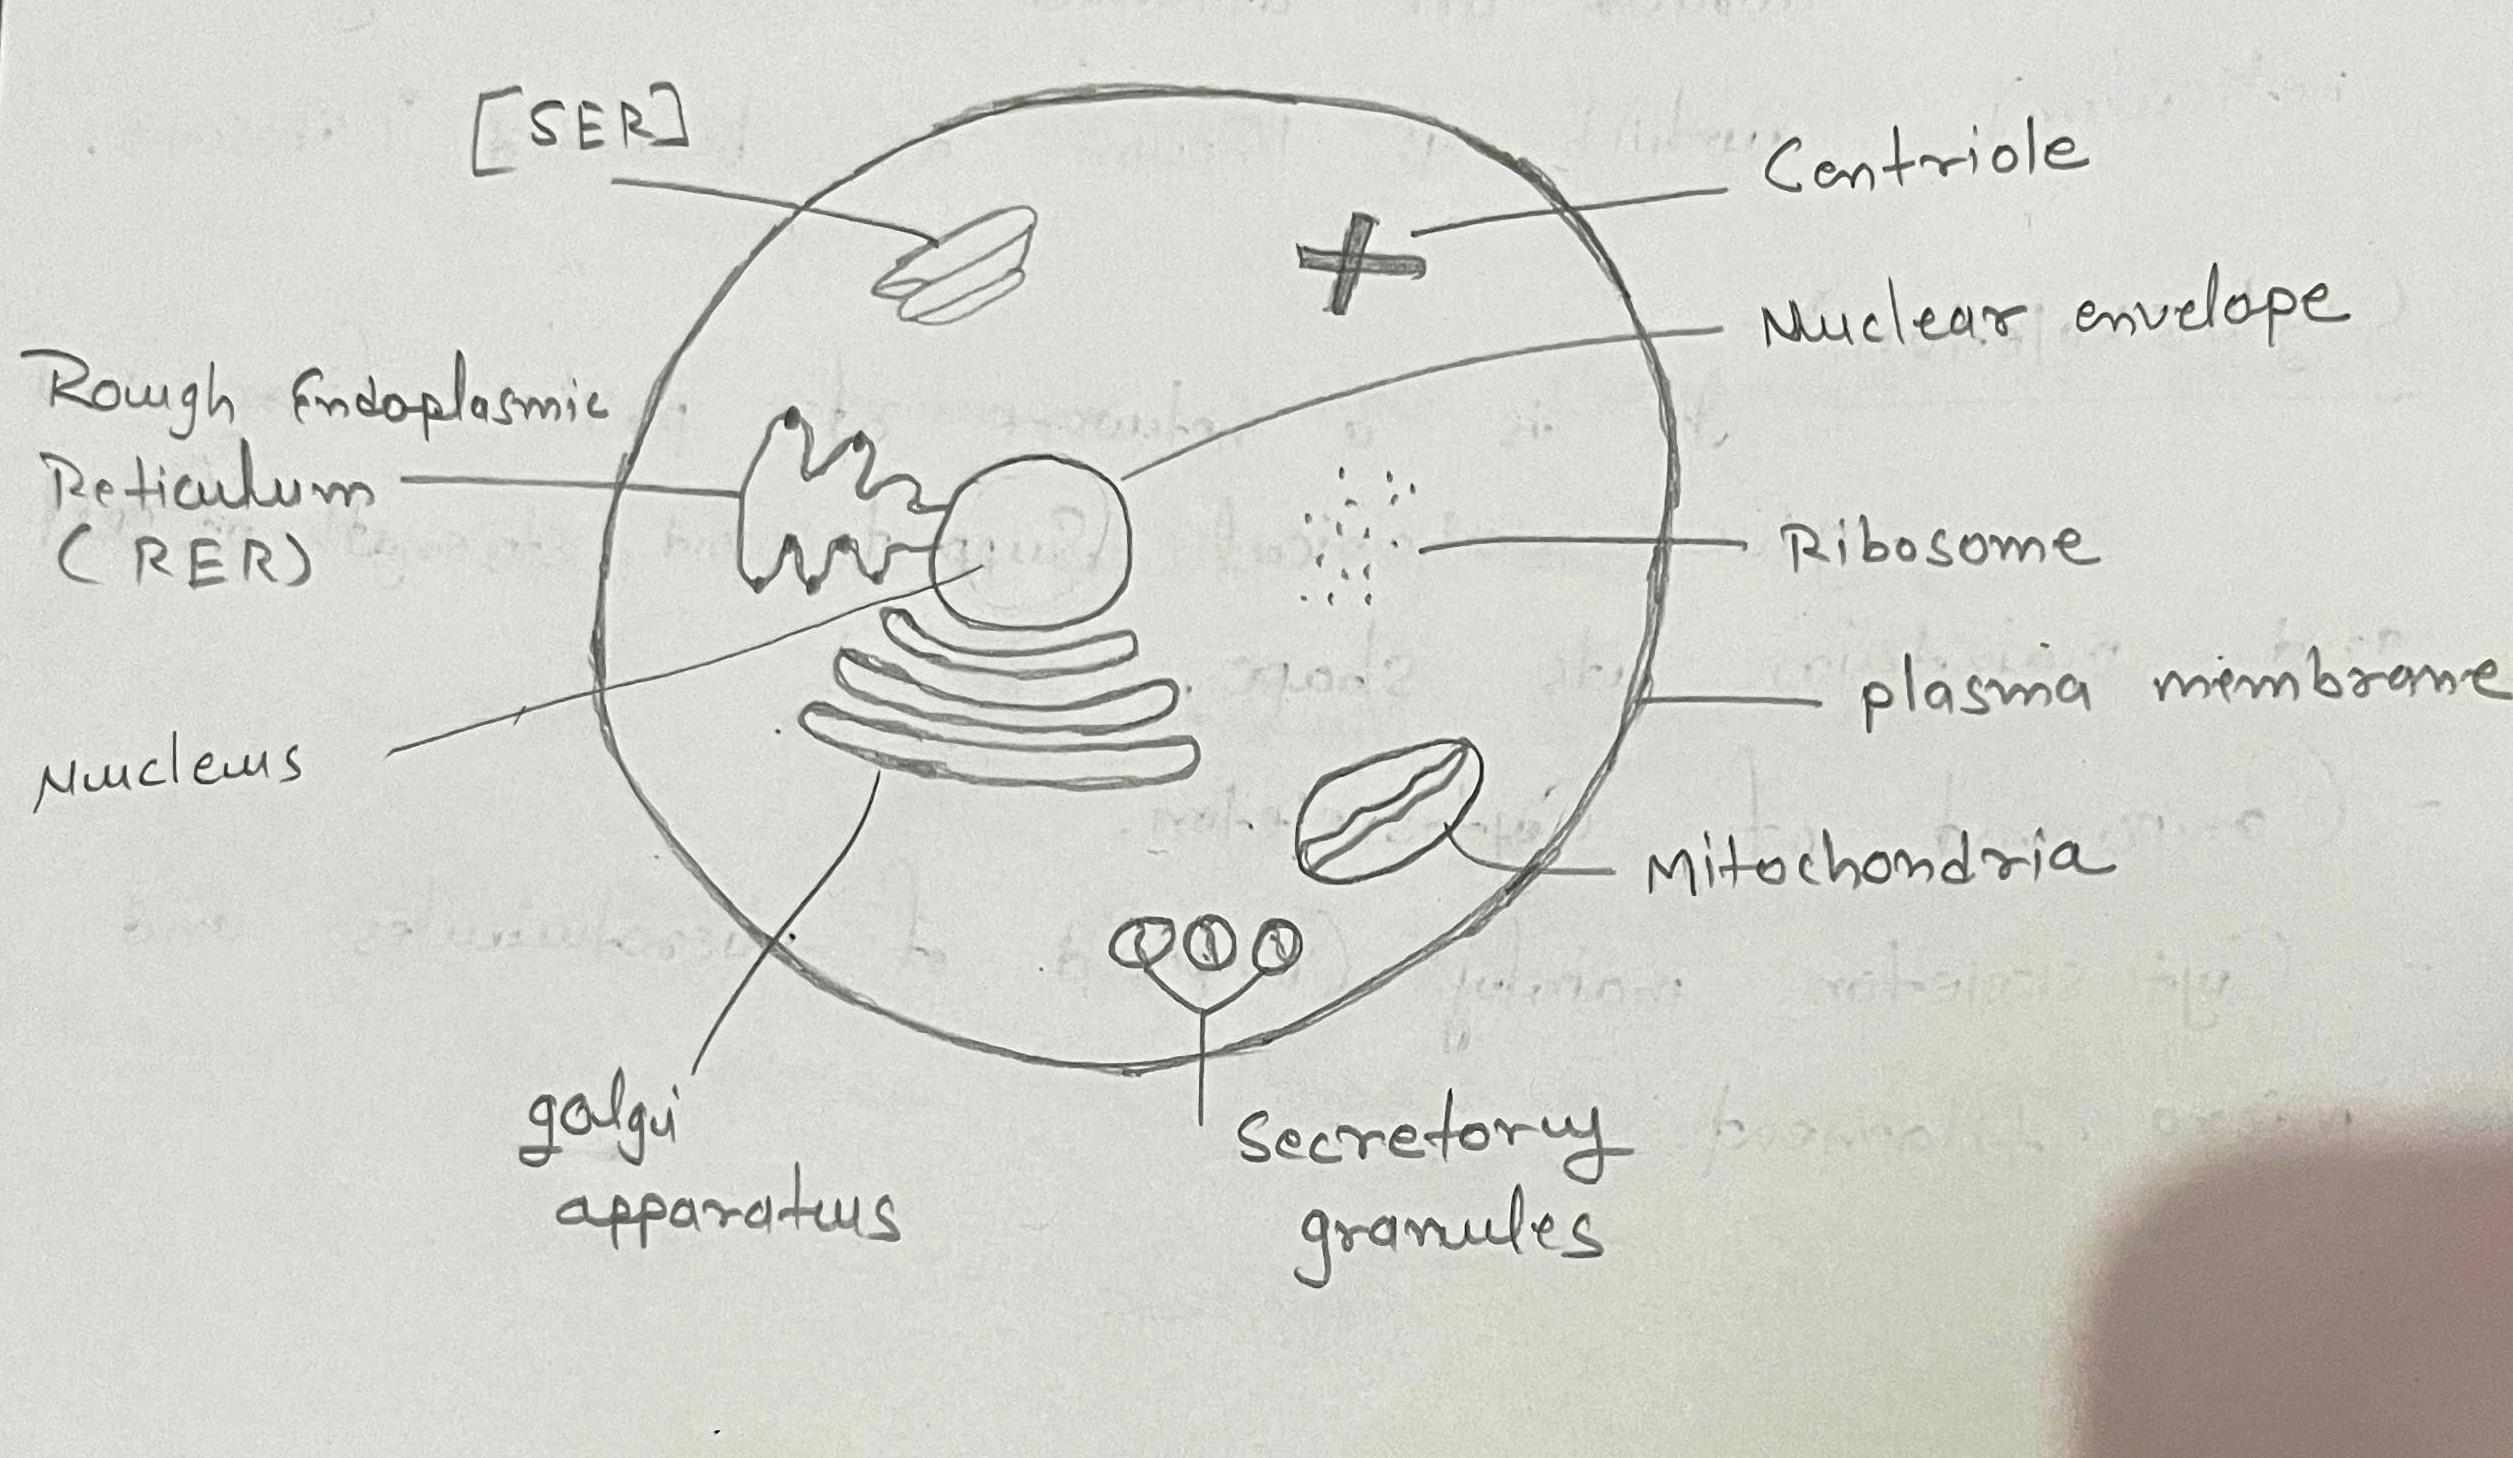 [SER]
Centriole
Nuclear envelope
Rough Endoplasmic
Reticulum
(RER)
Ribosome
plasma membrane
Nucleus
Mitochondria
golgi
apparatus
Secretory
granules